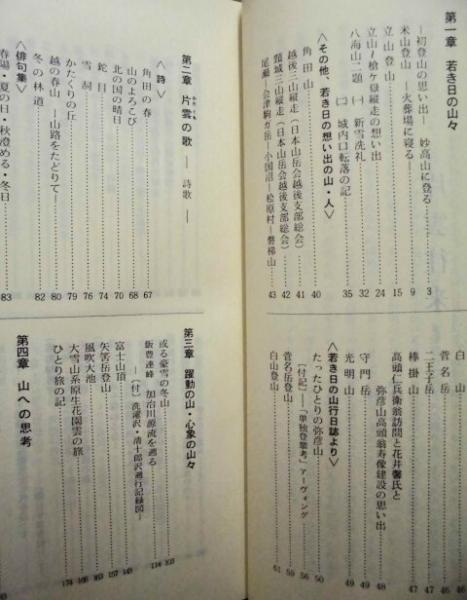 第一章 若き日の山々
―初登山の思い出― 妙高山に登る 3
米山登山 ―火葬場に寝る― 9
立山登山 15
立山〜槍ヶ嶽縦走の想い出 24
八海山二題 ㈠ 新雪洗礼 32
㈡ 城内口転落の記 35
〈その他、若き日の想い出の山・人〉
角田山 40
越後三山縦走(日本山岳会越後支部総会) 41
頸城三山縦走(日本山岳会越後支部総会) 42
尾瀬―会津駒ガ岳―小国沼―桧原村―磐梯山 43
白山
菅名岳 46
二王子岳 46
棒掛山 47
高頭仁兵衛翁訪問と花井馨氏と 47
弥彦山高頭翁寿像建設の思い出 48
守門岳 48
光明山 49
〈若き日の山行日誌より〉
たったひとりの弥彦山 50
〔付記〕―「単独登攀考」アーヴィング 56
菅名岳登山 59
白山登山 61
第二章 片雲の歌 ―詩歌―
〈詩〉
角田の春 67
山のよろこび 68
北の国の晴日 70
蛇目 74
雪洞 76
かたくりの丘 79
越の春山 ―山路をたどりて― 80
冬の林道 82
〈俳句集〉
春陽・夏の日・秋澄める・冬日 83
第三章 躍動の山・心象の山々
或る豪雪の冬山 103
飯豊連峰 加治川源流を遡る 114
―〔付〕洗濯沢・清十郎沢遡行記録図―
富士山頂 143
矢筈岳登山 157
風吹大池
大雪山系原生花園雲の旅 166
ひとり旅の記 174
第四章 山への思考